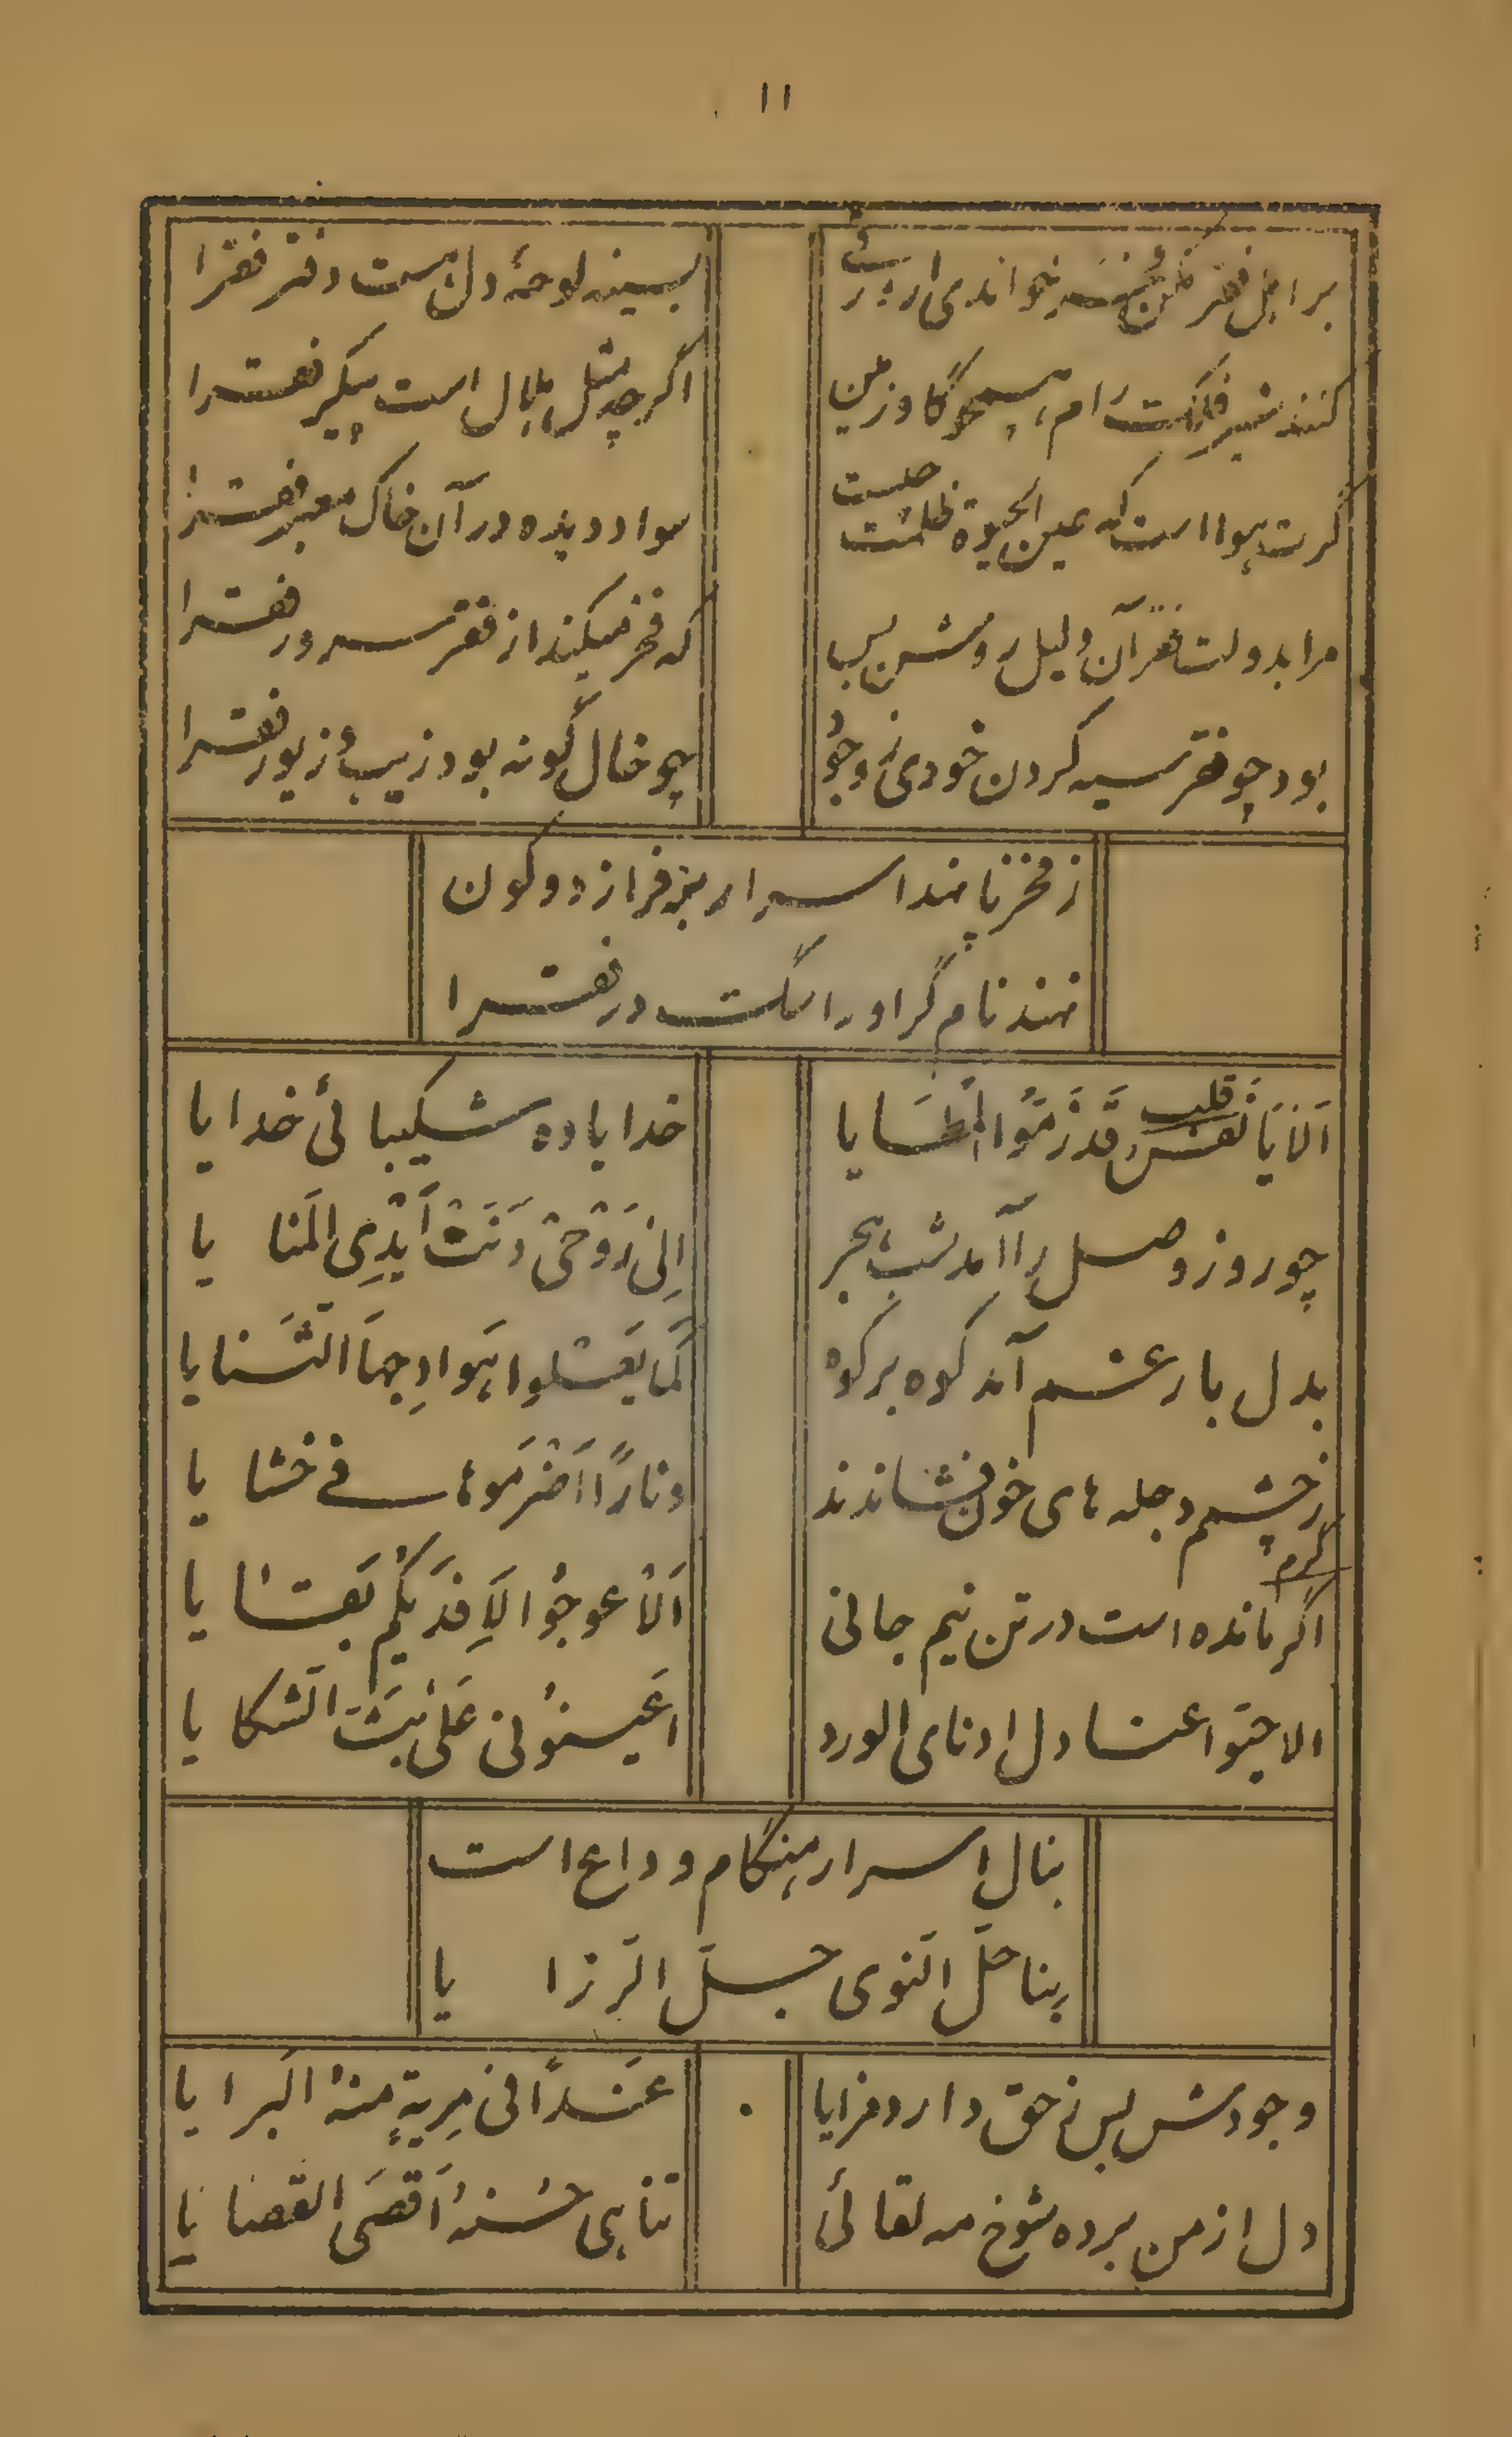 ۱۱
بر اهل فقر مکن فخر نخواندی ار ورقی
بسینه لوحهٔ دل هست دفتر فقرا
کنند شیر فلک رام همچو گاو زمین
اگرچه مثل هلال است پیکر فقرا
گرت هوا است که عین الحیوة ظلمت چیست
سواد دیده در آن خاک معبر فقرا
مرا بدولت فقر آن دلیل روشن بس
که فخر میکند از فقر سرور فقرا
بود چو فقر سیه کردن خودی ز وجود
چو خال گونه بود زیب و زیور فقرا
ز فخر پا نهد اسرار بر فراز دو کون
نهند نام گر او را سگ در فقرا
اَلا یا نَفس قلب قَد زَمّوا المَطایا
خدایا ده شکیبائی خدایا
چو روز وصل را آمد شب هجر
اِلی رَوحی دَنَت اَیدِی المَنایا
بدل بار غم آمد کوه بر کوه
کَما یَعلوا هَوادِجها الثَنایا
ز چشم دجله های خون فشاندند
و ناراً اَضرَموها فی خشایا
کرم
اگر مانده است در تن نیم جانی
اَلا عوجُوا لِاَفدیکُم بَقایا
الا جیتوا عنادل ادنای الورد
اعَینونی عَلی بَثّ الشکایا
بنال اسرار هنگام وداع است
بنا حلّ النوی جلّ الرزایا
وجودش بس ز حق دارد مزایا
غَدا فی مِریةٍ منهُ البرایا
دل از من برده شوخ مه لقائی
تناهی حُسنهُ اَقصَی القضایا